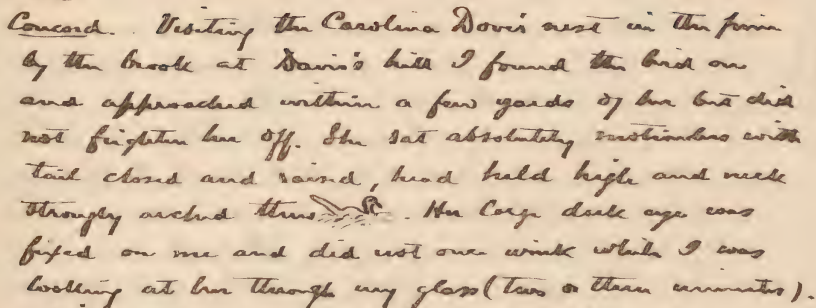 Concord. Visiting the Carolina Dove's nest in the pine
by the brook at Davis's hill I found the bird on
and approached within a few yards of her but did
not frighten her off. She sat absolutely motionless with
tail closed and raised, head held high and neck
strongly arched thus. Her large dark eye was
fixed on me and did not once wink while I was
looking at her through my glass (two or three minutes).